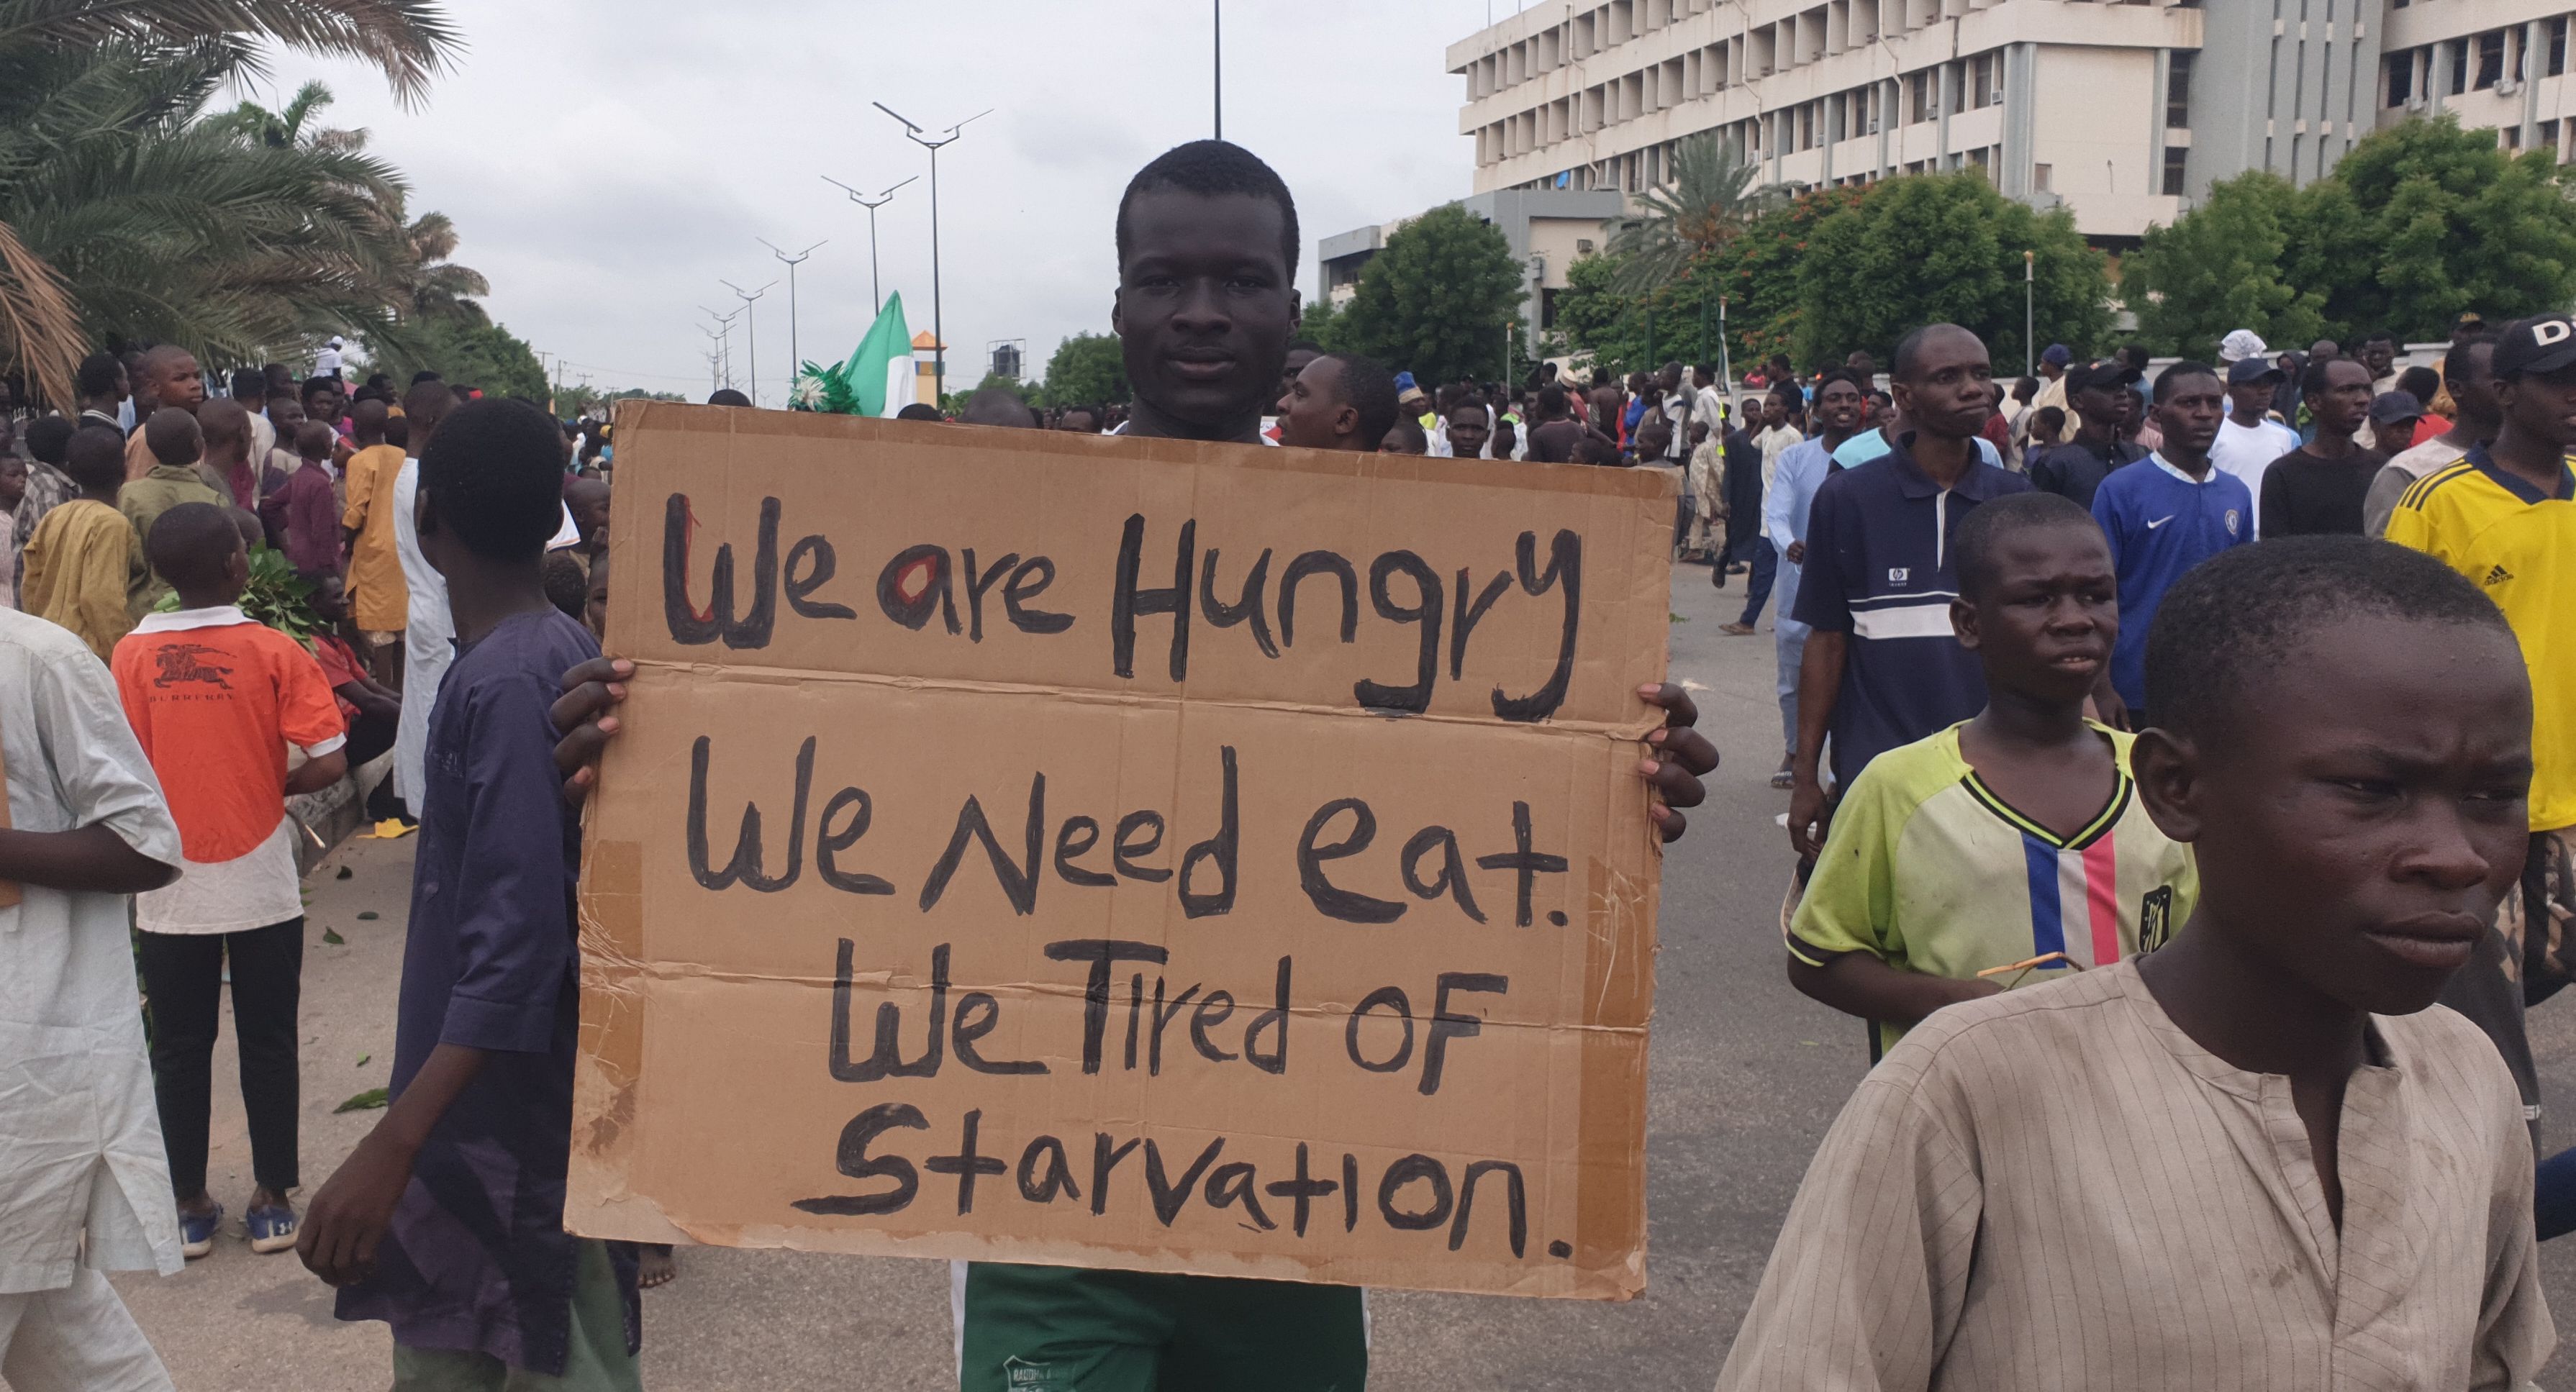 We are Hungry
We Need eat.
We Tired OF
Starvation.
BURBERRY
hp
D